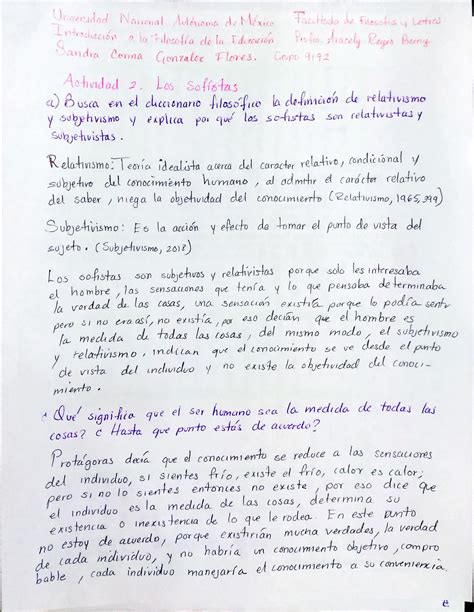 Universidad Nacional Autónoma de México Facultado de Filosofía y Letras
Introducción a la Filosofía de la Educación. Profra. Aracely Reyes
Sandra Corina Gonzalez Flores. Grupo 9192
Actividad 2. Los Sofistas
a) Busca en el diccionario filosófico la definición de relativismo
y subjetivismo y explica por qué los sofistas son relativistas y
subjetivistas.
Relativismo: Teoría idealista acerca del caracter relativo, condicional y
subjetivo del conocimiento humano, al admitir el carácter relativo
del saber, niega la objetividad del conocimiento (Relativismo, 1965, 399)
Subjetivismo: Es la acción y efecto de tomar el punto de vista del
sujeto. (Subjetivismo, 2018)
Los sofistas son subjetivos y relativistas porque solo les interesaba
el hombre, las sensaciones que tenía y lo que pensaba determinaba
la verdad de las cosas, una sensación existía porque lo podía sentir
pero si no era así, no existía, por eso decían que el hombre es
la medida de todas las cosas, del mismo modo, el subjetivismo
y relativismo, indican que el conocimiento se ve desde el punto
de vista del individuo y no existe la objetividad del conoci-
miento.
¿Qué significa que el ser humano sea la medida de todas las
cosas? ¿Hasta que punto estás de acuerdo?
Protágoras decía que el conocimiento se reduce a las sensaciones
del individuo, si sientes frío, existe el frío, calor es calor;
pero si no lo sientes entonces no existe, por eso dice que
el individuo es la medida de las cosas, determina su
existencia o inexistencia de lo que le rodea. En este punto
no estoy de acuerdo, porque existirían mucha verdades, la verdad
de cada individuo, y no habría un conocimiento objetivo, compro
bable, cada individuo manejaría el conocimiento a su conveniencia.